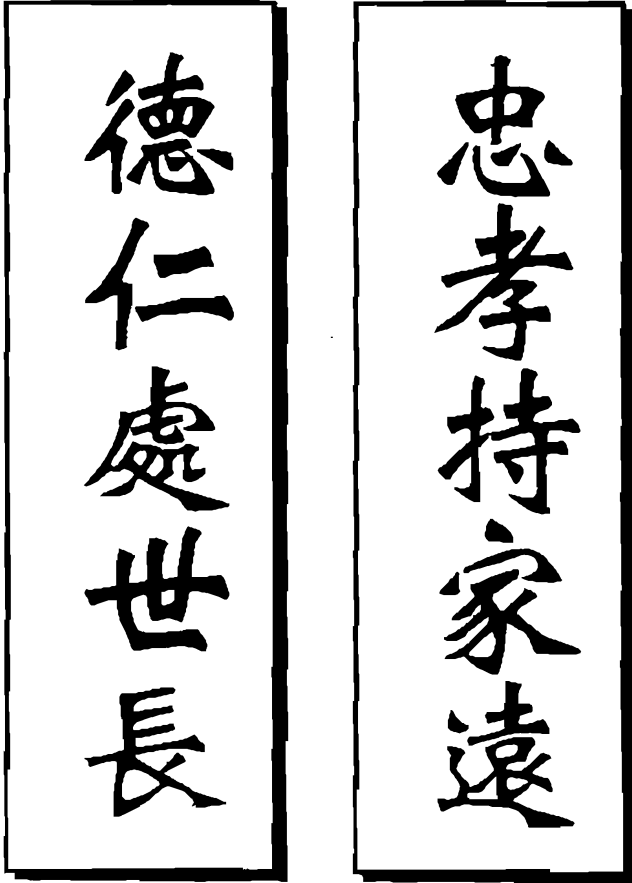 忠孝持家遠
德仁處世長